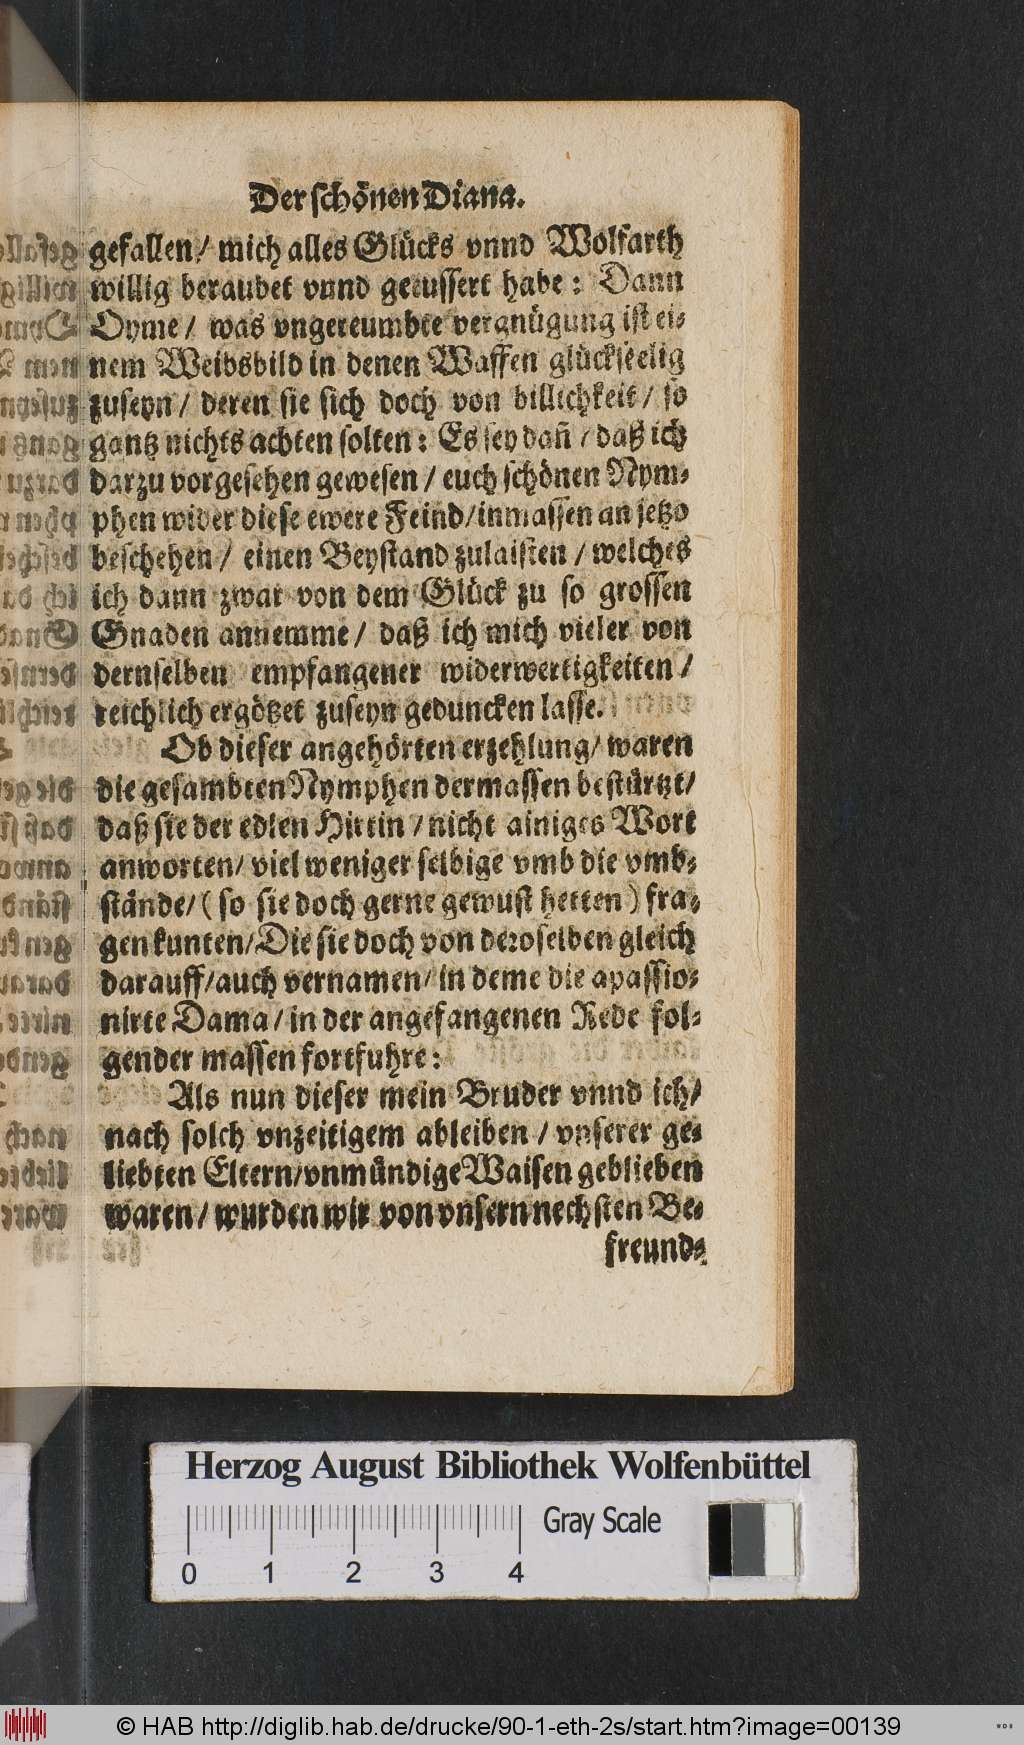 Der schönen Diana.
gefallen / mich alles Glücks vnnd Wolfarth
willig beraubet vnnd geeussert habe: Dann
Oyme / was vngereumbte vergnügung ist ei-
nem Weibsbild in denen Waffen glückseelig
zuseyn / deren sie sich doch von billichkeit / so
gantz nichts achten solten: Es sey dañ / daß ich
darzu vorgesehen gewesen / euch schönen Nym-
phen wider diese ewere Feind / inmassen an jetzo
beschehen / einen Beystand zulaisten / welches
ich dann zwar von dem Glück zu so grossen
Gnaden annemme / daß ich mich vieler von
dernselben empfangener widerwertigkeiten /
reichlich ergötzet zuseyn geduncken lasse.
Ob dieser angehörten erzehlung / waren
die gesambten Nymphen dermassen bestürtzt /
daß sie der edlen Hirtin / nicht ainiges Wort
anworten / viel weniger selbige vmb die vmb-
stände / ( so sie doch gerne gewust hetten ) fra-
gen kunten / Die sie doch von deroselben gleich
darauff / auch vernamen / in deme die apassio-
nirte Dama / in der angefangenen Rede fol-
gender massen fortfuhre:
Als nun dieser mein Bruder vnnd ich /
nach solch vnzeitigem ableiben / vnserer ge-
liebten Eltern / vnmündige Waisen geblieben
waren / wurden wir von vnsern nechsten Be-
freund-
Herzog August Bibliothek Wolfenbüttel
Gray Scale
0 1 2 3 4
© HAB http://diglib.hab.de/drucke/90-1-eth-2s/start.htm?image=00139